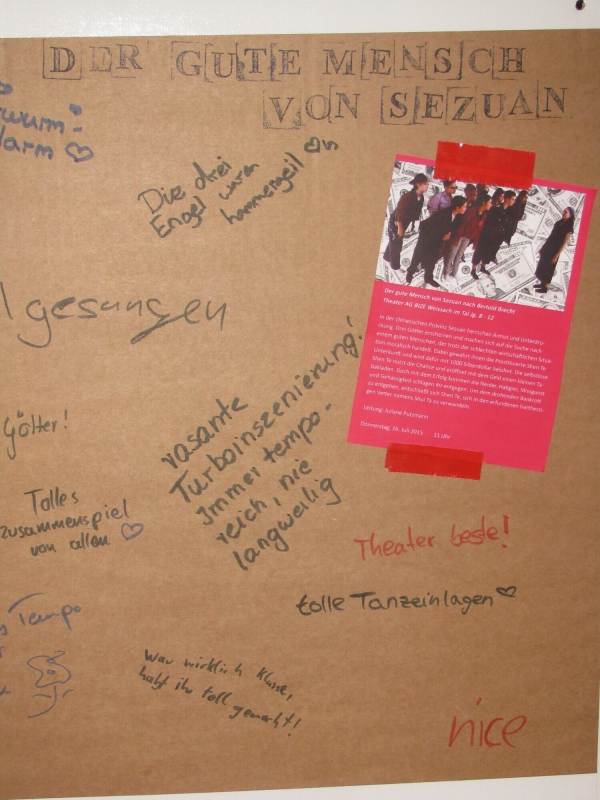 DER GUTE MENSCH
VON SEZUAN
wurm-
larm
Die drei
Engel waren
hammergeil
gesungen
Götter!
Tolles
zusammenspiel
von allen
Tempo
rasante
Turboinszenierung!
Immer tempo-
reich, nie
langweilig
War wirklich klasse,
habt ihr toll gemacht!
Der gute Mensch von Sezuan nach Bertold Brecht
Theater AG BIZE Weissach im Tal Jg. 8 - 12
In der chinesischen Provinz Sezuan herrschen Armut und Unterdrü-
ckung. Drei Götter erscheinen und machen sich auf die Suche nach
einem guten Menschen, der trotz der schlechten wirtschaftlichen Situa-
tion moralisch handelt. Dabei gewährt ihnen die Prostituierte Shen Te
Unterkunft und wird dafür mit 1000 Silberdollar belohnt. Die selbstlose
Shen Te nutzt die Chance und eröffnet mit dem Geld einen kleinen Ta-
bakladen. Doch mit dem Erfolg kommen die Neider. Habgier, Missgunst
und Gehässigkeit schlagen ihr entgegen. Um dem drohenden Bankrott
zu entgehen, entschließt sich Shen Te, sich in den erfundenen hartherzi-
gen Vetter namens Shui Ta zu verwandeln.
Leitung: Juliane Putzmann
Donnerstag, 16. Juli 2015 21 Uhr
Theater beste!
tolle Tanzeinlagen
nice